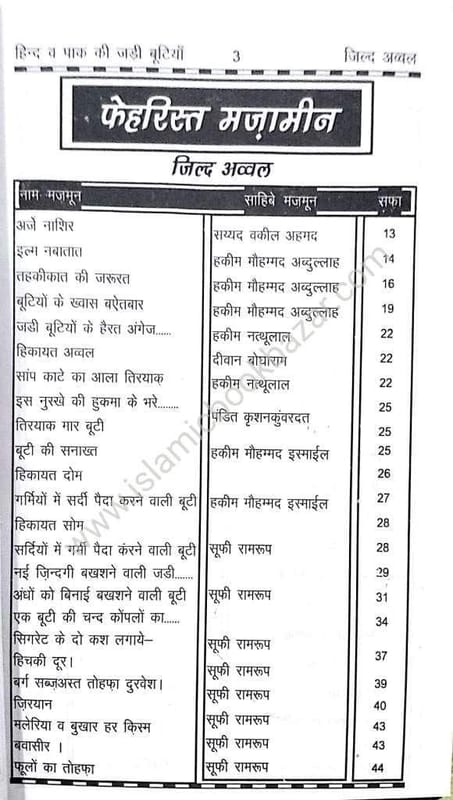 हिन्द व पाक की जडी बूटियाँ 3 जिल्द अव्वल
फेहरिस्त मज़ामीन
जिल्द अव्वल
नाम मजमून साहिबे मजमून सफ़ा
अर्जे नाशिर सय्यद वकील अहमद 13
इल्म नबातात हकीम मौहम्मद अब्दुल्लाह 14
तहकीकात की जरूरत हकीम मौहम्मद अब्दुल्लाह 16
बूटियों के ख्वास बऐतबार हकीम मौहम्मद अब्दुल्लाह 19
जडी बूटियों के हैरत अंगेज...... हकीम नत्थूलाल 22
हिकायत अव्वल दीवान बोघाराम 22
सांप काटे का आला तिरयाक् हकीम नत्थूलाल 22
इस नुस्खे की हुकमा के भरे........ पंडित कृशनकुंवरदत 25
तिरयाक मार बूटी 25
बूटी की सनाख्त हकीम मौहम्मद इस्माईल 25
हिकायत दोम 26
गर्मियों में सर्दी पैदा करने वाली बूटी हकीम मौहम्मद इस्माईल 27
हिकायत सोम 28
सर्दियों में गर्मी पैदा करने वाली बूटी सूफी रामरूप 28
नई ज़िन्दगी बखशने वाली जडी....... 29
अंधों को बिनाई बखशने वाली बूटी सूफी रामरूप 31
एक बूटी की चन्द कोंपलों का...... 34
सिगरेट के दो कश लगाये– सूफी रामरूप
हिचकी दूर। सूफी रामरूप 37
बर्ग सब्ज़अस्त तोहफ़ा दुरवेश। सूफी रामरूप 39
ज़िरयान 40
मलेरिया व बुखार हर क़िस्म सूफी रामरूप 43
बवासीर । सूफी रामरूप 43
फूलों का तोहफ़ा सूफी रामरूप 44
www.islamicbookbazar.com